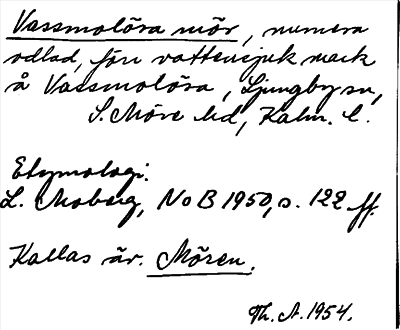 Vassmolösa mör, numera
odlad, förr vattensjuk mark
å Vassmolösa, Ljungby sn,
S. Möre hd, Kalm. l.
Etymologi.
L. Moberg, NoB 1950, s. 122 ff.
Kallas är. Mören.
Th. A. 1954.